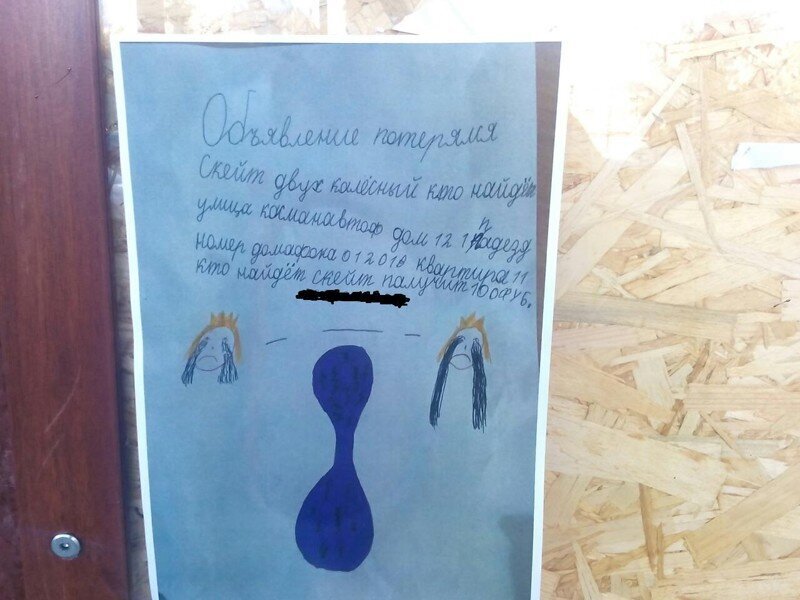 Объявление потерялся
Скейт двух калёсный кто найдёт
улица касманавтоф дом 12 1 падезд
номер домафона 012018 квартира 11
кто найдёт скейт палучит 100 руб.